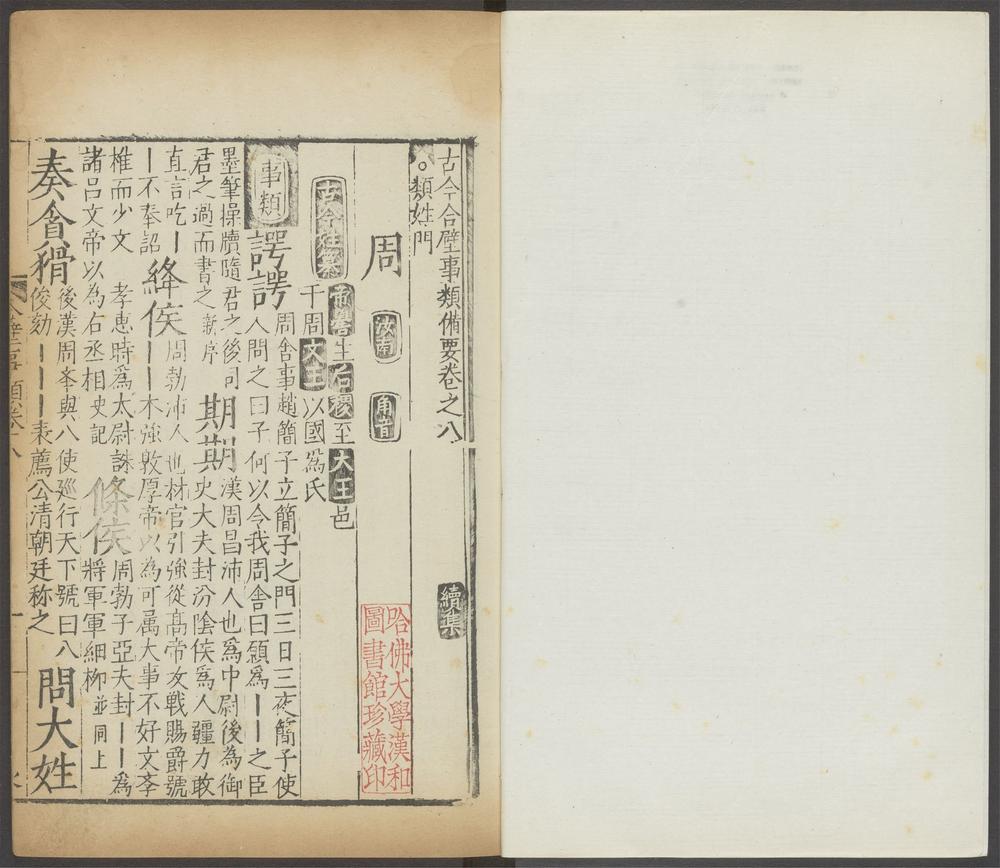 古今合璧事類備要卷之八 續集
○類姓門
周 汝南 角音
古今姓纂 帝嚳生后稷至大王邑
于周文王以國爲氏
事類 諤諤 周舎事趙簡子立簡子之門三日三夜簡子使
人問之曰子何以令我周舎曰願爲――之臣
墨筆操牘隨君之後司
君之過而書之新序 期期 漢周昌沛人也爲中尉後為御
史大夫封汾陰侯爲人疆力敢
直言吃―
―不奉詔 絳侯 周勃沛人也材官引強從髙帝攻戰賜爵號
――木強敦厚帝以為可属大事不好文李
椎而少文 孝惠時爲太尉誅
諸吕文帝以為右丞相史記 條侯 周勃子亞夫封――爲
將軍軍細柳並同上
奏貪猾 後漢周李與八使廵行天下號曰八
俊劾―――表薦公清朝廷称之 問大姓
哈佛大學漢和
圖書館珍藏印